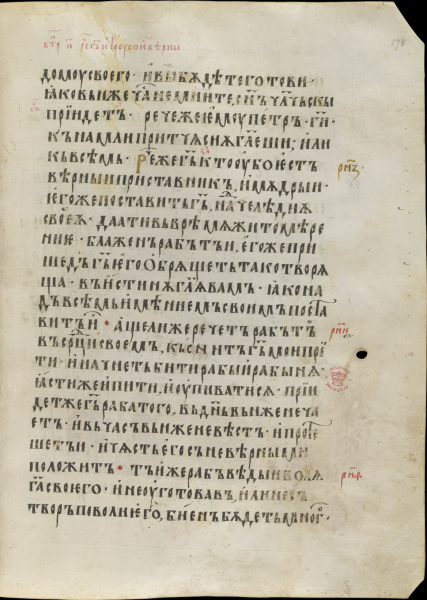 домоу своего · и вы бѫдете готови ·
ꙗко вьн же ча не мните, снъ члчьскы
приидетъ · рече же емоу петръ · ги ·
къ намъ ли притчѫ сиѫ глеши; или
къ всѣмь · Рече же гь · кто оубо естъ
вѣрныи приставникъ, и мѫдрыи ·
егоже поставитъ гь, на челѣдиѫ
своеѫ · даати въ врѣмѧ житомѣре
ние · блаженъ рабъ тъи · егоже при
шедъ гь его обрѧщетъ тако творѧ
ща · въ истинѫ глѧ вамъ · ꙗко на
дъ всѣмь имѣниемъ своимъ поста
витъ и · аще ли же речетъ рабъ тъ
въ срци своемъ, къснитъ гь мои прї
ти · и начнетъ бити рабы и рабынѧ ·
ꙗсти же и пити, и оупиватисѧ · прїи
детъ же гь раба того, въ днь вьнже не ча
етъ · и въ часъ вьнже не вѣстъ · и проте
шетъ и · и чѧсть его съ невѣрными
положитъ · тъи же рабъ вѣдыи волѧ
га своего · и не оуготовавъ, и ли не съ
творь по воли его, биенъ бѫдетъ много ·
198